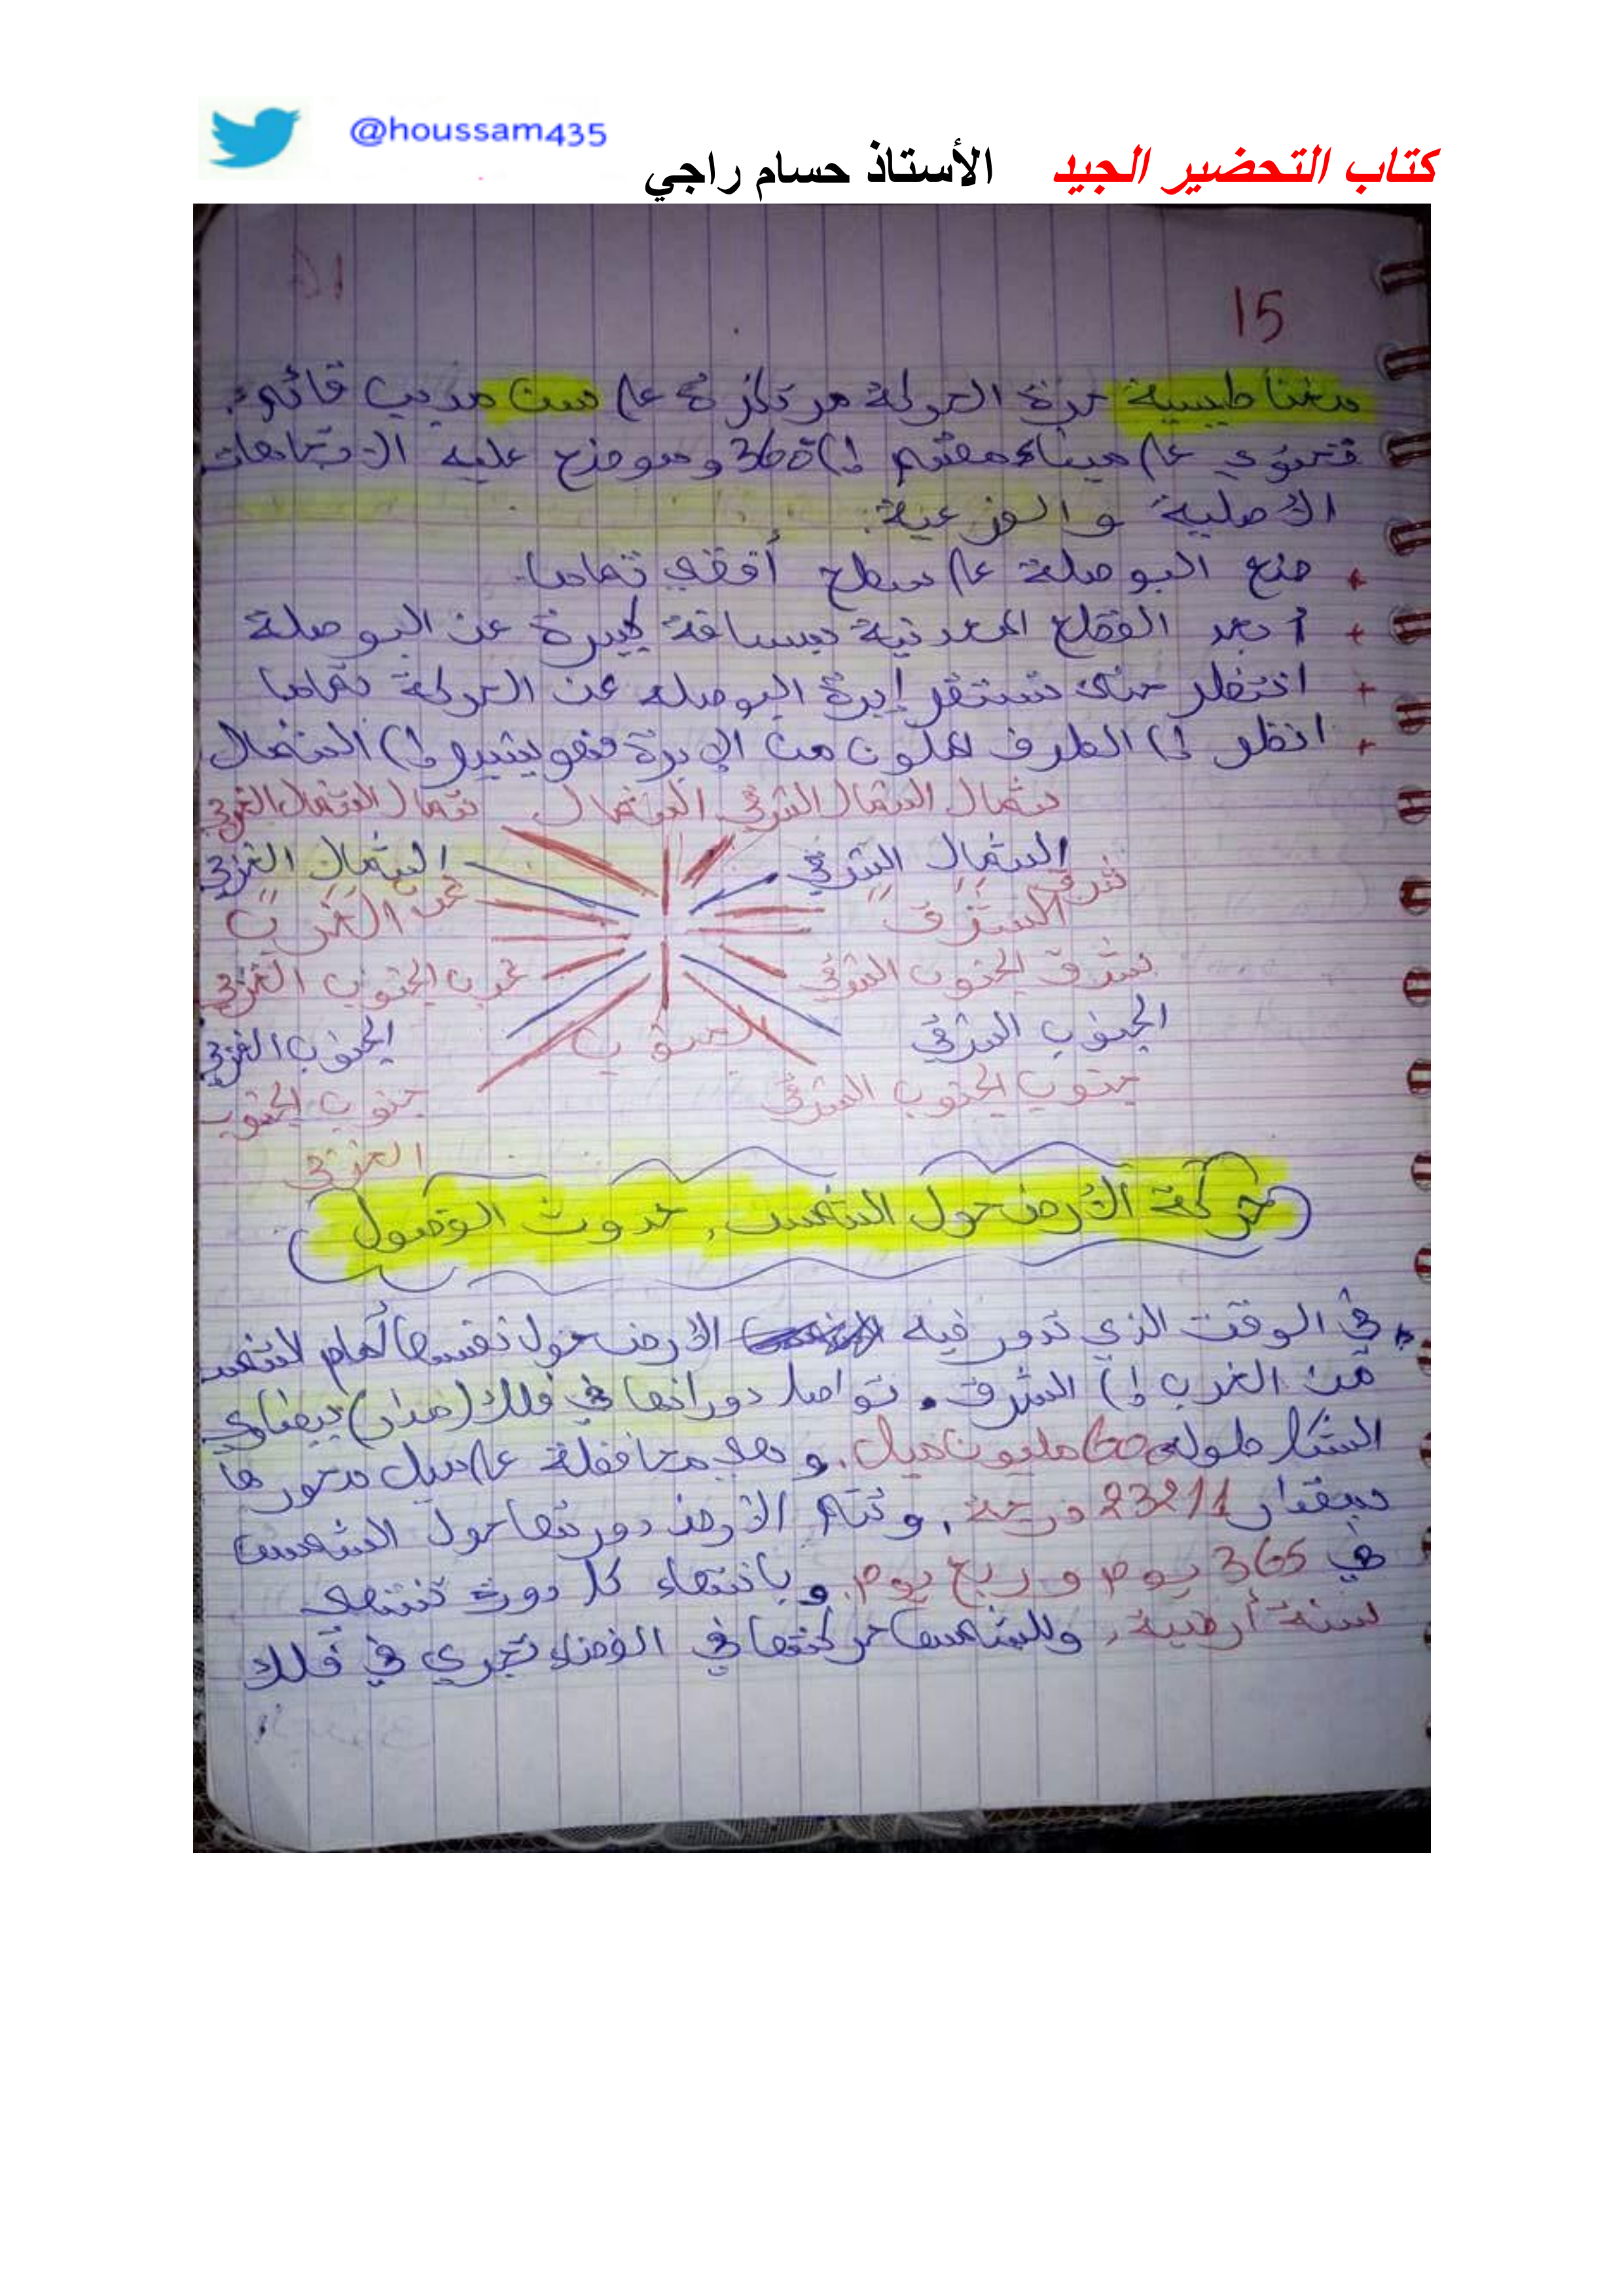 @houssam435
كتاب التحضير الجيد الأستاذ حسام راجي
15
مغناطيسية حرة الحركة مرتكزة على سن مذبب قائم،
تحتوي على ميناء مقسم إلى 360 وموضح عليه الاتجاهات
الأصلية والفرعية:
ضع البوصلة على سطح أفقي تماما.
+ أبعد القطع المعدنية بمسافة كبيرة عن البوصلة
+ انتظر حتى تستقر إبرة البوصله عن الحركة تماما
+ انظر إلى الطرف الملون من الإبرة فهو يشير إلى الشمال
شمال الشمال الشرقي الشمال شمال الشمال الغربي
الشمال الشرقي الشمال الغربي
شرق
الشرق الغرب
شرق الجنوب الشرقي غرب الجنوب الغربي
الجنوب الشرقي الجنوب الجنوب الغربي
جنوب الجنوب الشرقي جنوب الجنوب
الغربي
حركة الأرض حول الشمس، حدوث الفصول
في الوقت الذي تدور فيه الأرض حول نفسها أمام الشمس
من الغرب إلى الشرق. تواصل دورانها في فلك (مدار) بيضاوي
الشكل طوله 600 مليون ميل. وهي محافظة على ميل محورها
بمقدار 23211 درجة، وتتم الأرض دورتها حول الشمس
في 365 يوم وربع يوم. وبانتهاء كل دورة تنتهي
سنة أرضية، وللشمس حركتها في الفضاء تجري في فلك